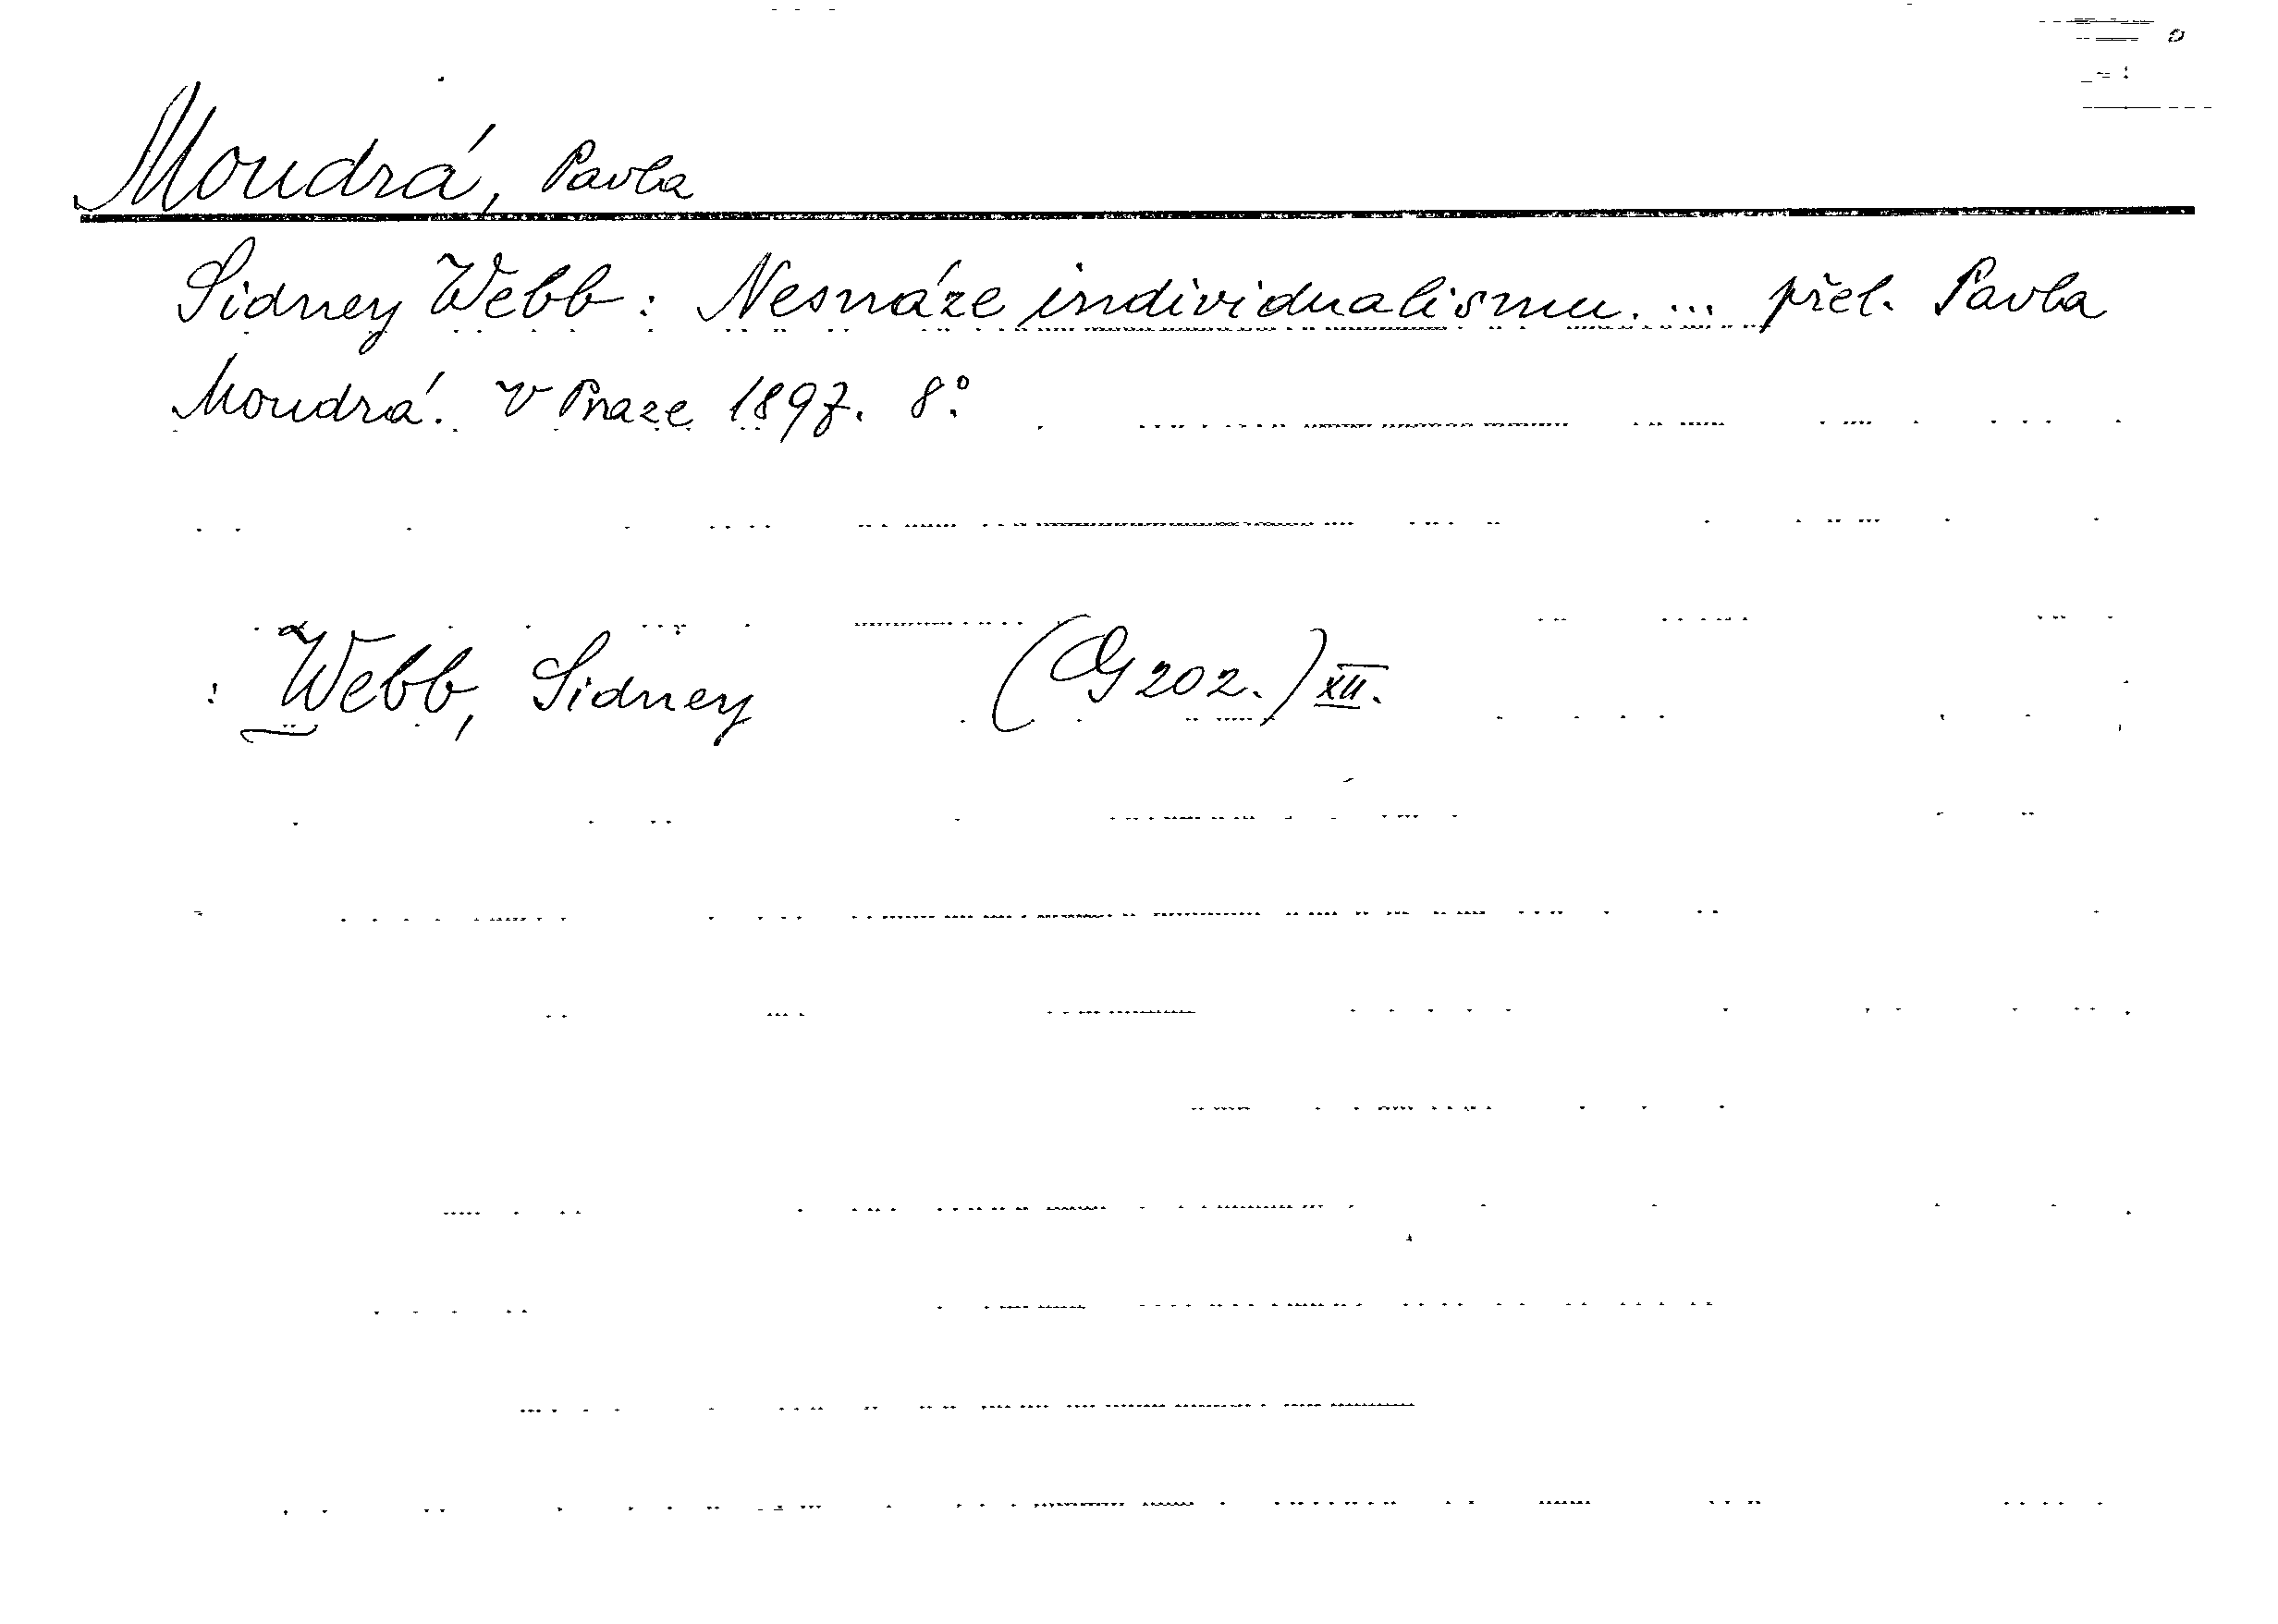 Moudrá, Pavla
Sidney Webb: Nesnáze individualismu. ... přel. Pavla
Moudrá. V Praze 1897. 8°.
: Webb, Sidney (G 202.) XII.